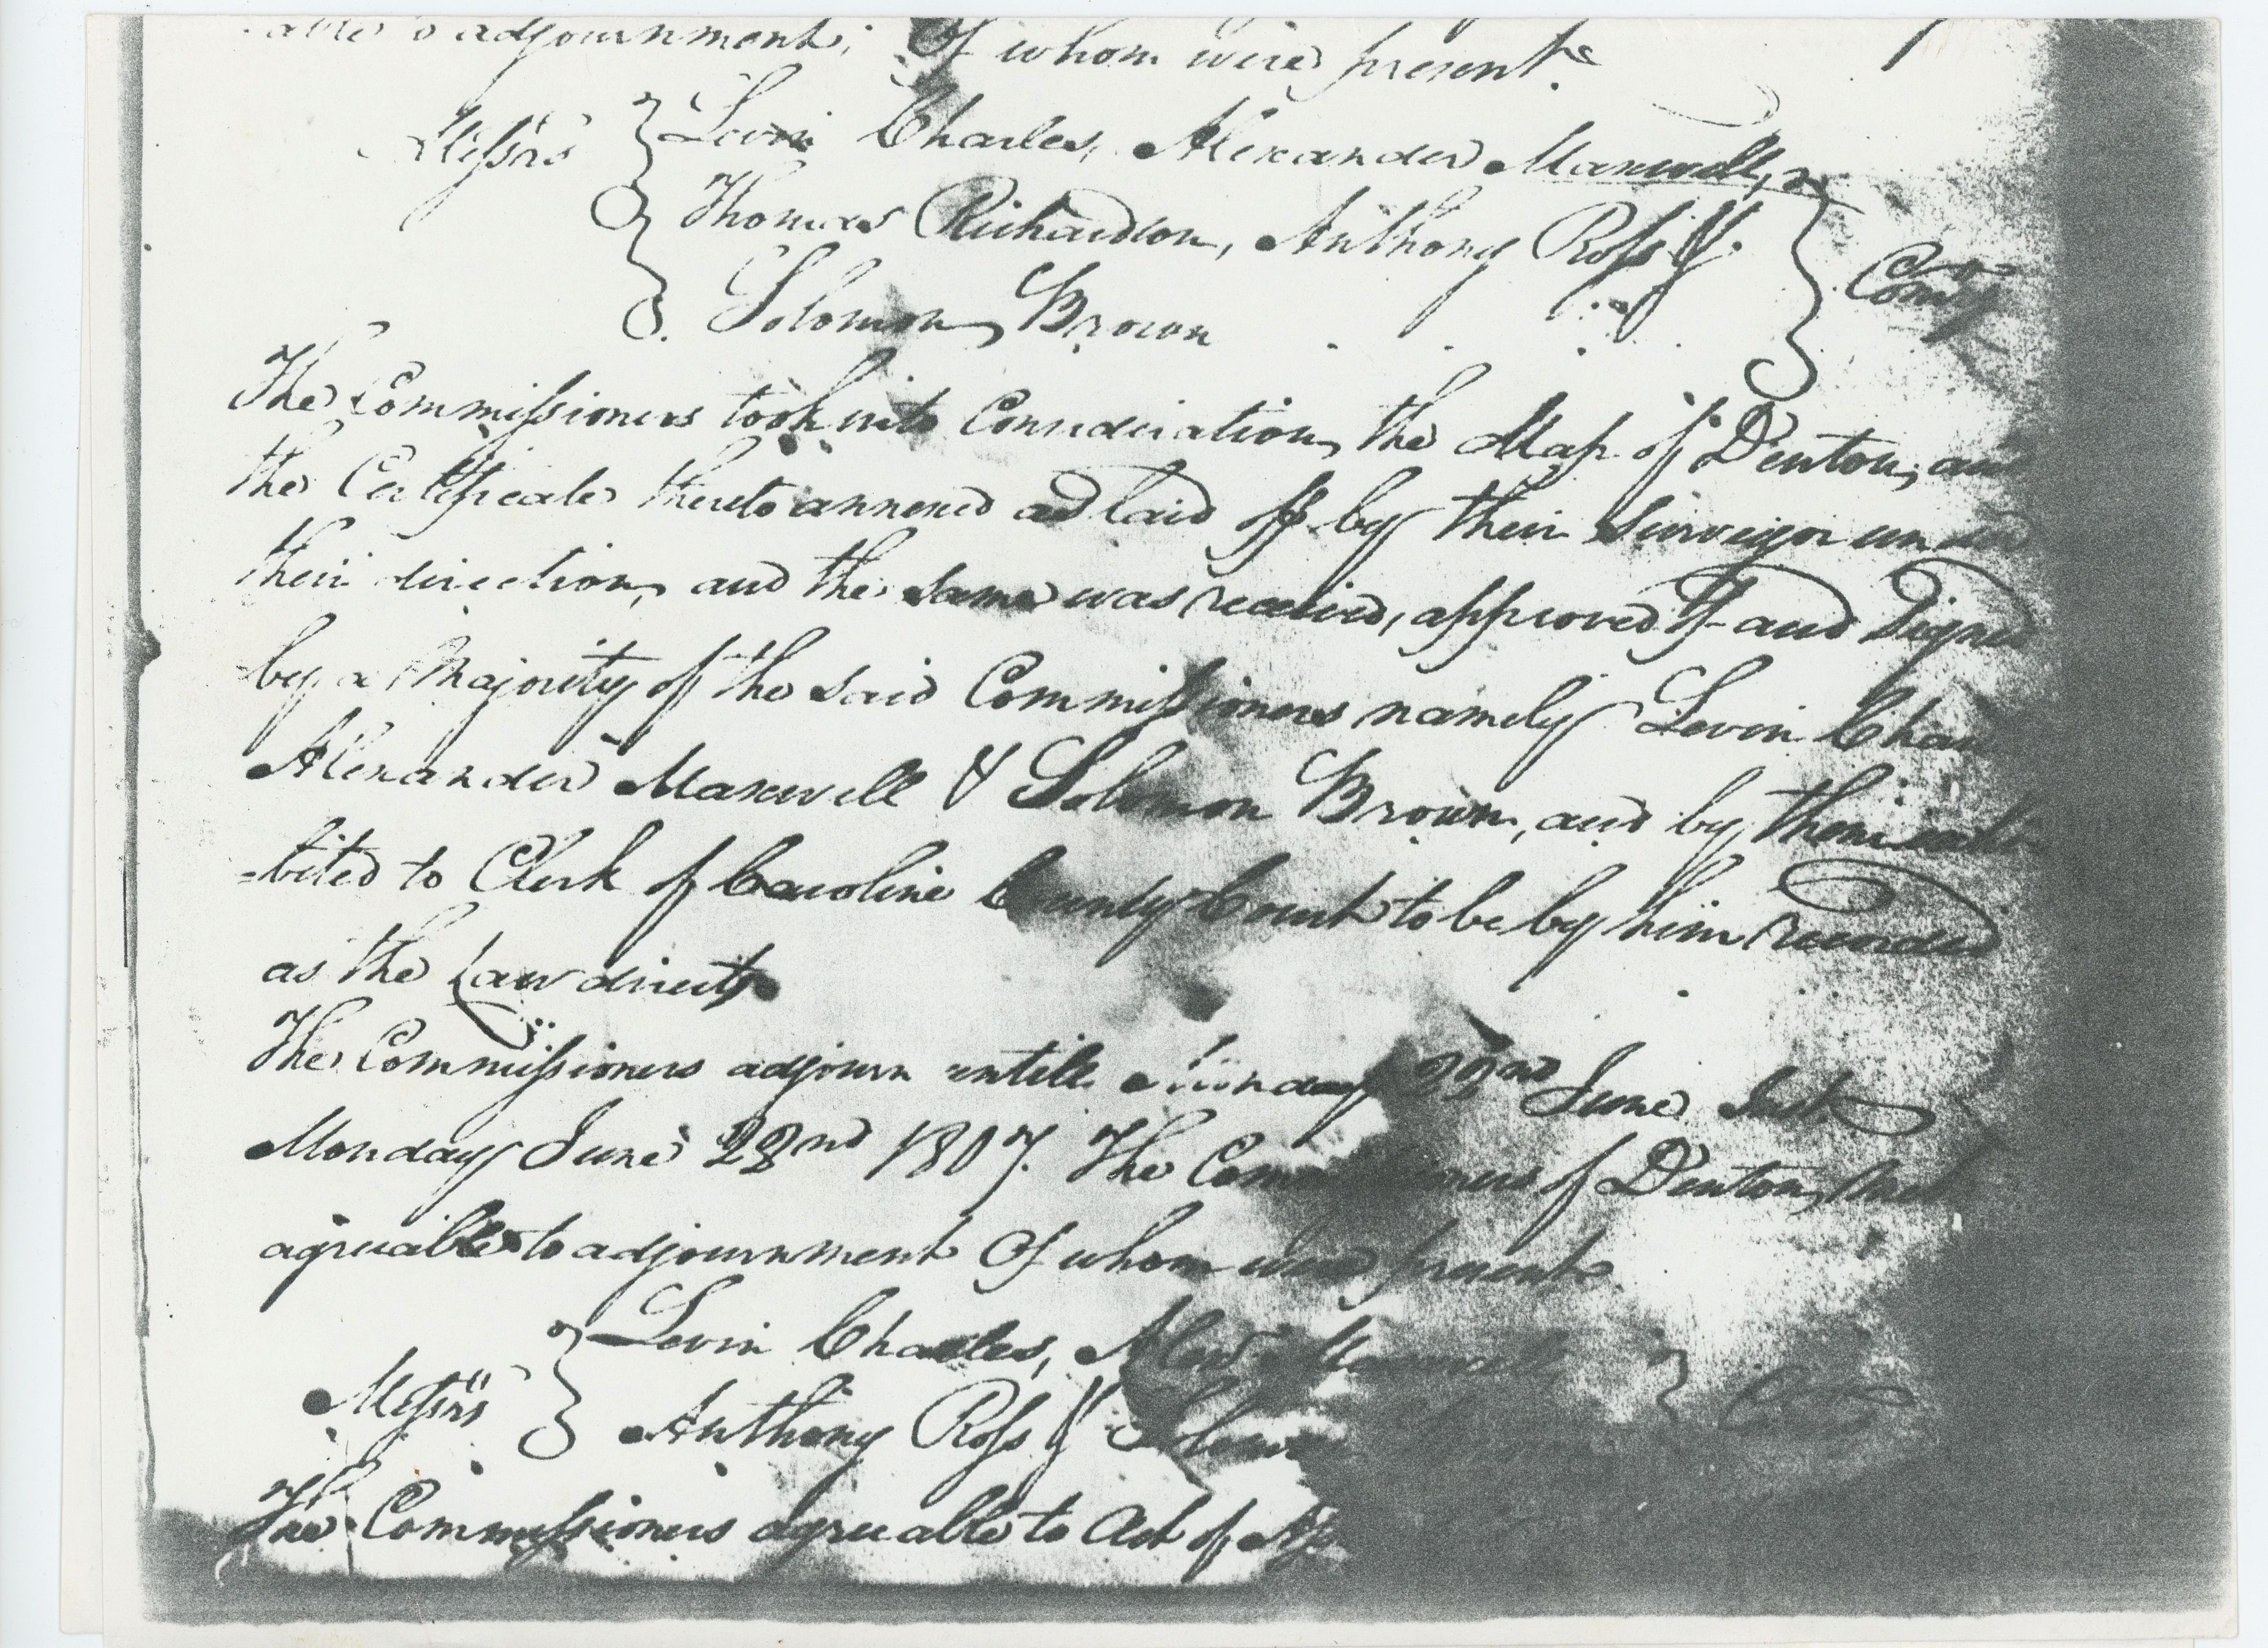 able to adjournment; Of whom were present
Messrs Levin Charles, Alexander Maxwell,
Thomas Richardson, Anthony Ross &
Solomon Brown
Comrs
The Commissioners took into Consideration, the Map of Denton, and
the Certificate thereto annexed as laid off by their Surveyor under
their direction, and the same was received, approved of and Signed
by a Majority of the said Commissioners namely Levin
Alexander Maxwell & Solomon Brown, and by them
-bited to Clerk of Caroline County Court to be by him recorded
as the Law directs
The Commissioners adjourn untill Monday 22nd June Inst
Monday June 22nd 1807. The Commissioners of Denton, met
agreeable to adjournment Of whom were present
Messrs Levin Charles, Alexr Maxwell
Anthony Ross & Solomon
The Commissioners agreeable to Act of